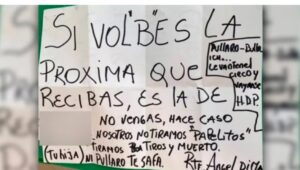 SI VOL"BES LA
PROXIMA QUE
RECIBAS, ES LA DE
PULLARO-
LEVANTEN EL
CIRCO Y
VAYANSE
H.D.P.
NO VENGAS, HACE CASO
NOSOTROS NO TIRAMOS "PAPELITOS"
TIRAMOS TIROS Y MUERTO.
(TU HIJA) NI PULLARO TE SAFA.
RTE ANGEL DIMA